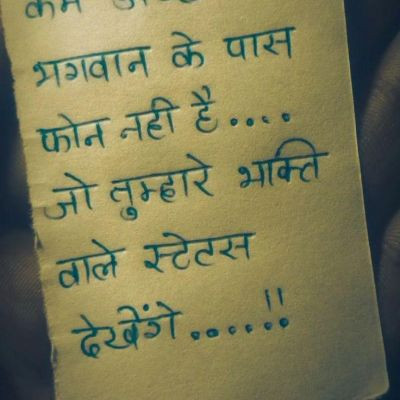 कर्म
भगवान के पास
फोन नही है....
जो तुम्हारे भक्ति
वाले स्टेटस
देखेंगे......!!